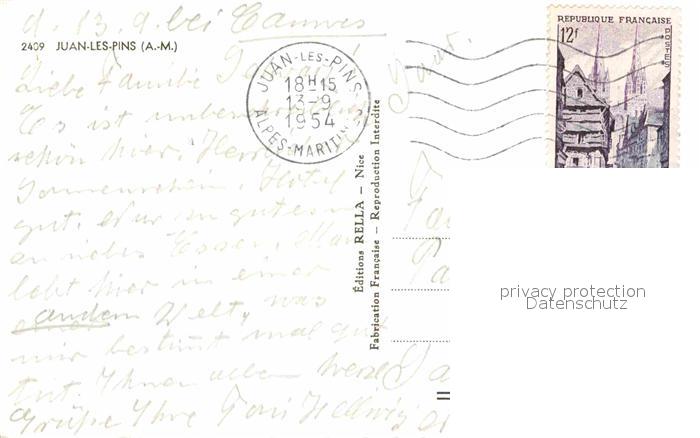 d. 13. 9. bei Cannes
2409 JUAN-LES-PINS (A.-M.)
Liebe Familie
Es ist unbe
schön hier. Herrl
Sonnenschein, Hotel
gut. Nur zu gutes u.
zu vieles Essen. Man
lebt hier in einer
andern Welt, was
mir bestimmt mal gut
tut. Ihnen allen herzl.
Grüße Ihre Toni Hellwig
JUAN-LES-PINS
18H15
13-9
1954
ALPES-MARITIMES
Éditions RELLA – Nice
Fabrication Française – Reproduction Interdite
Fa
RÉPUBLIQUE FRANÇAISE
12f
POSTES
privacy protection
Datenschutz